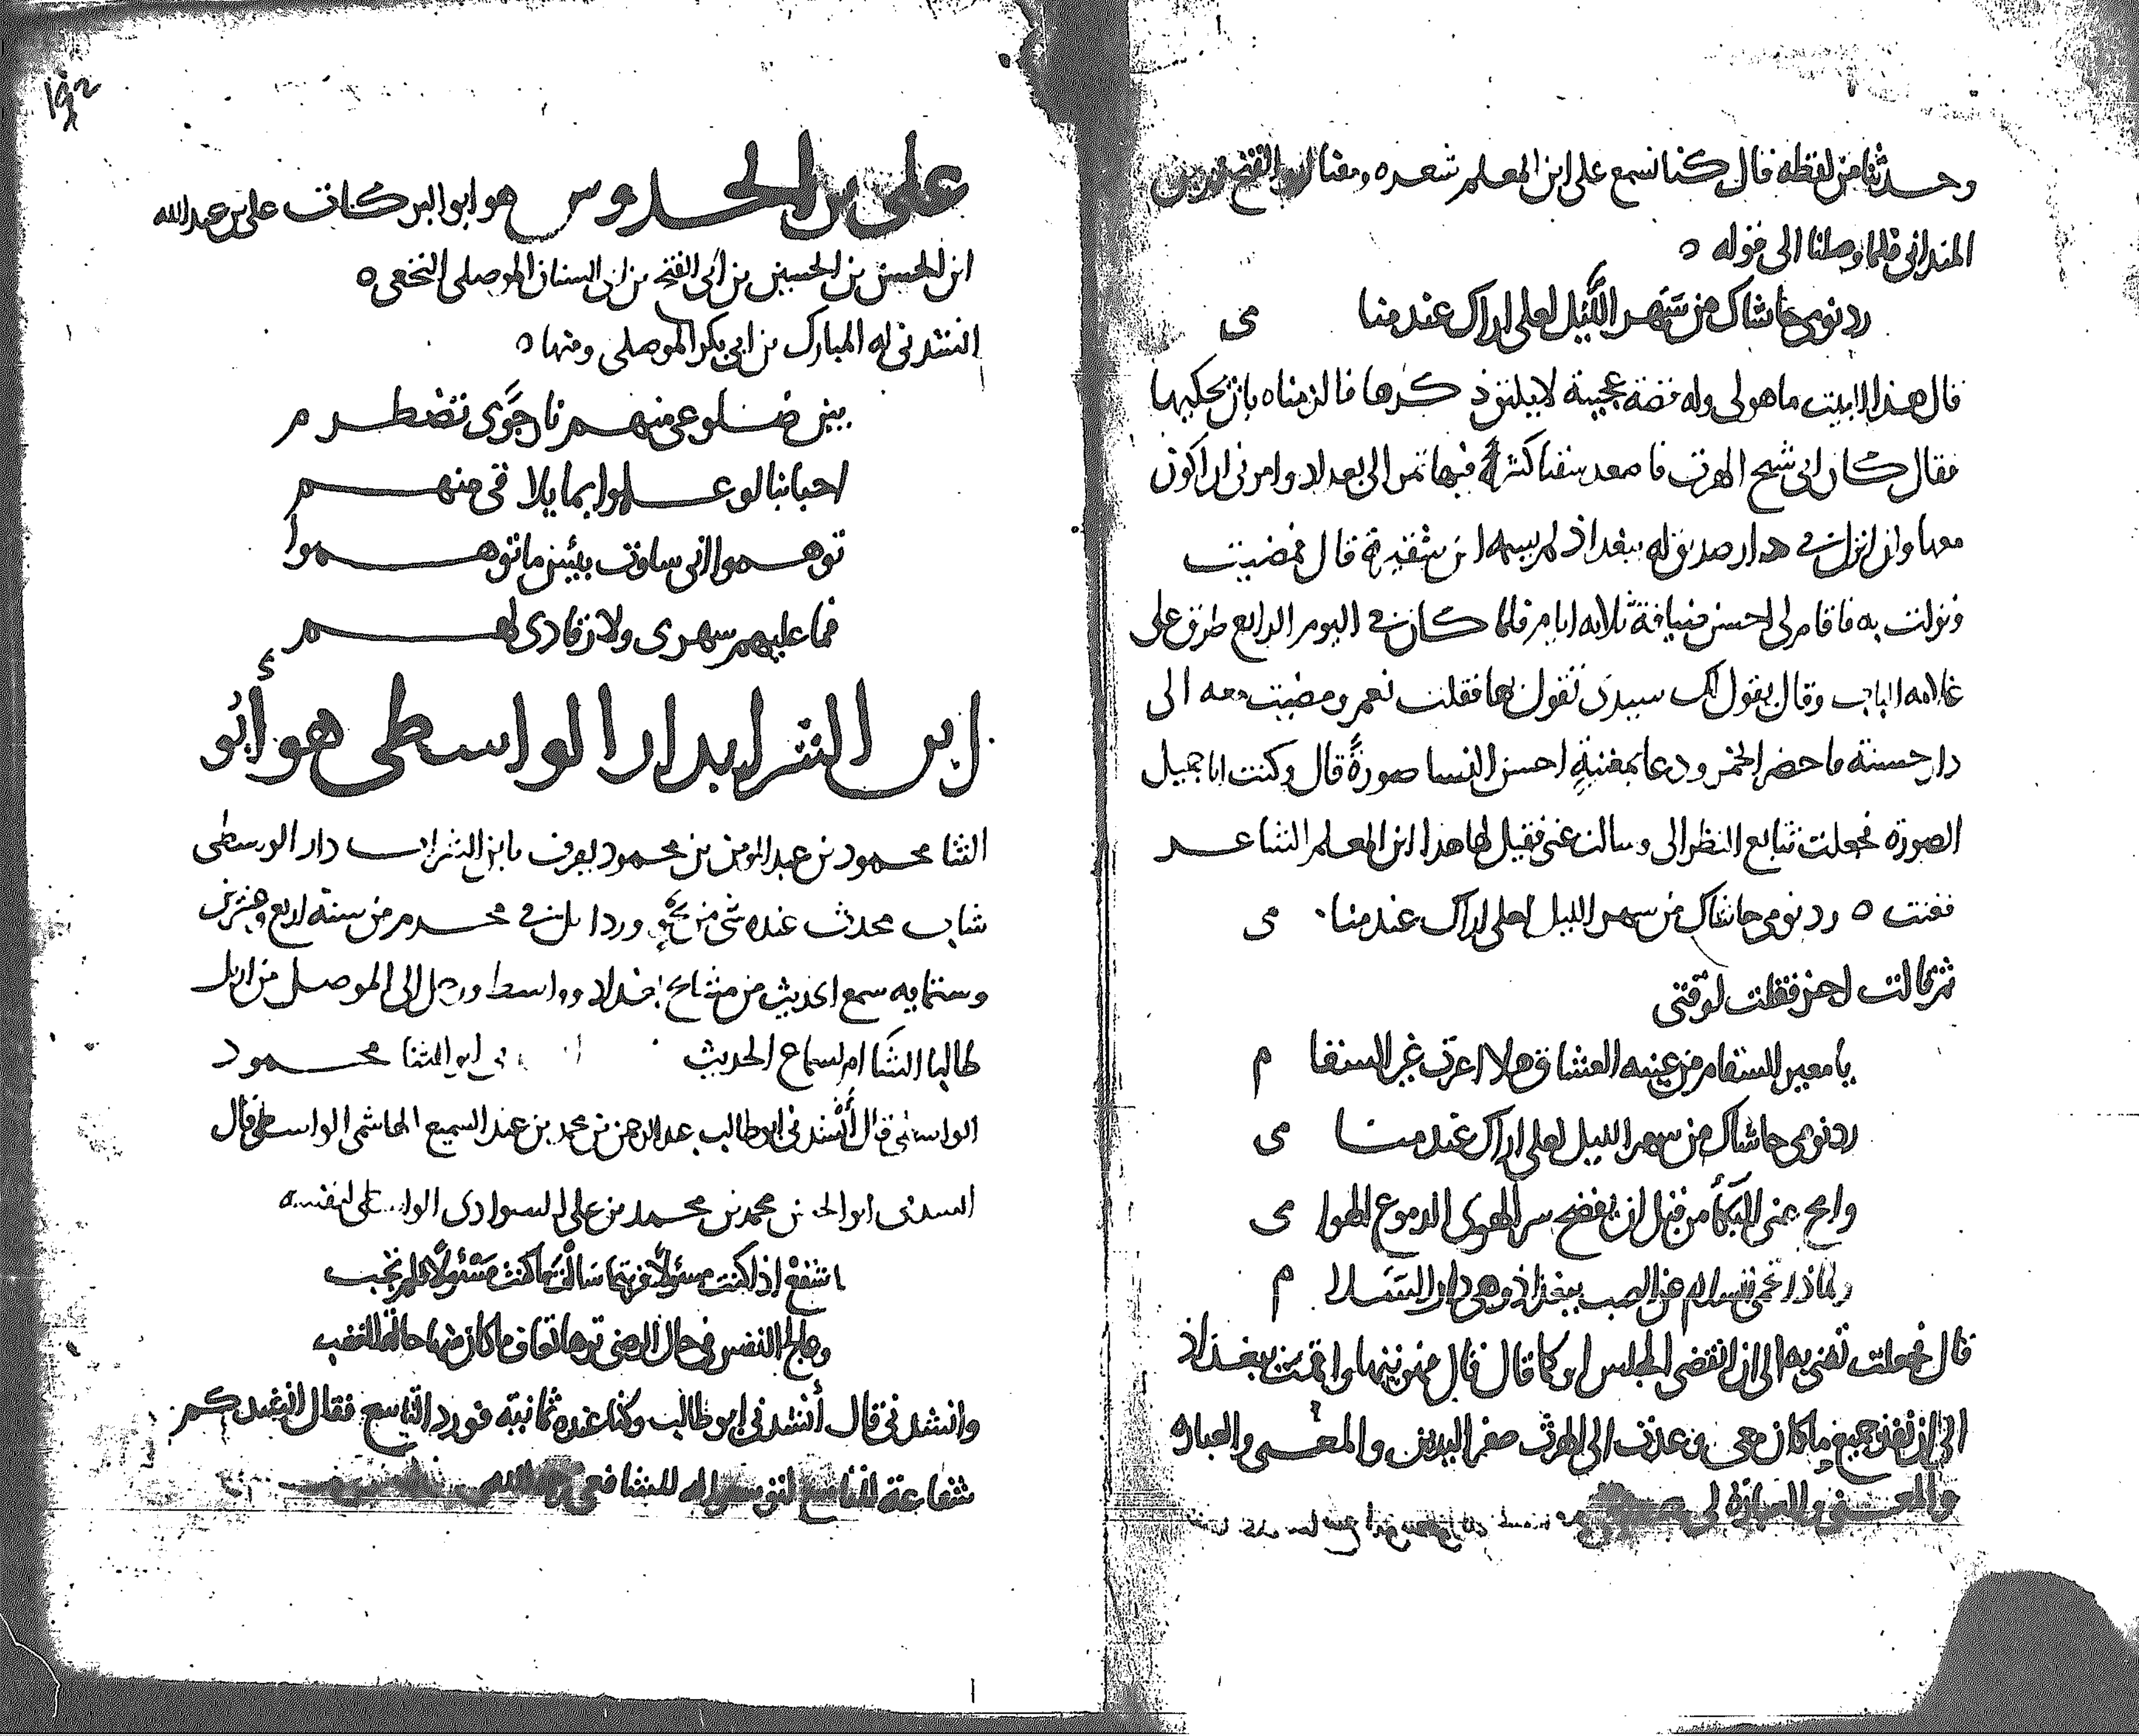 وحدثنا من لفظه قال كنا نسمع على ابن المعلم شعره ومعنا
المندائي فلما وصلنا الى قوله ه
رد نومي حاشاك من سهر الليل لعلي اراك عند منا مي
قال هذا البيت ما هو لي وله قصة عجيبة لا يليق ذكرها فالزمناه بان يحكيها
فقال كان ابي شيخ الهرث فاصعد سفنا كثيرة فيها تمر الى بغداد وامرني ان اكون
معها وان انزل في دار صديق له ببغداذ لم يسمه ابن شقيرة قال فمضيت
ونزلت به فاقام لي احسن ضيافة ثلاثه ايام فلما كان في اليوم الرابع طرق علي
غلامه الباب وقال يقول لك سيدي تقول بها فقلت نعم ومضيت معه الى
دار حسنة فاحضر الخمر ودعا بمغنية احسن النسا صورة قال وكنت انا جميل
الصورة فجعلت تتابع النظر الي وسالت عني فقيل لها هذا ابن المعلم الشاعر
فغنت ه رد نومي حاشاك من سهر الليل لعلي اراك عند منا مي
ثم قالت اجز فقلت لوقتي
يا معير السقام من عينيه العشاق هلا اعرت غير السقا م
رد نومي حاشاك من سهر الليل لعلي اراك عند منا مي
وامح عني البكا من قبل ان يفضح سر الهوى الدموع الهوا مي
ولماذا تحمي السلام عن الصب ببغداذ وهي دار السلا م
قال فجعلت تغني به الى ان انقضى المجلس او كما قال قال فهويتها واقمت ببغداذ
الى ان نفد جميع ما كان معي وعدت الى الهرث صفر اليدين والمعنى والعباره
والمعنى والعبارة لي
١٩٢
علي بن الحدوس هو ابو البركات علي بن عبد الله
ابن الحسن بن الحسين بن ابي الفتح بن ابي السنان الموصلي النخعي ه
انشدني له المبارك بن ابي بكر الموصلي ومنها ه
بين ضلوعي منهم نار جوى تضطرم
احبابنا لو علموا بما يلاقي منهم
توهموا اني سلوت بئس ما توهموا
فما عليهم سهري ولا رقادي لهم
ابن الشرابدار الواسطي هو أبو
الثنا محمود بن عبد المومن بن محمود يعرف بابن الشراب دار الوسطى
شاب محدث عنده شي من نحو ورد اربل في محرم من سنة اربع وعشرين
وستمايه سمع الحديث من مشايخ بغداد وواسط ورحل الى الموصل من اربل
طالبا الشام لسماع الحديث ني ابو الثنا محمود
الواسطي قال أنشدني ابو طالب عبد الرحمن بن محمد بن عبد السميع الهاشمي الواسطي قال
انشدني ابو الحسن بن محمد بن محمد بن علي السوادي الواسطي لنفسه
اشفع اذا كنت مسئولا فربتما سالت ما كنت مسئولا فلم تجب
وعالج النفس في حال الرضى ترها تعاف ما كان منها حالة الغضب
وانشدني قال أنشدني ابو طالب وكنا عنده ثمانية فورد التاسع فقال انشدكم
شفاعة التاسع انشد له للشافعي